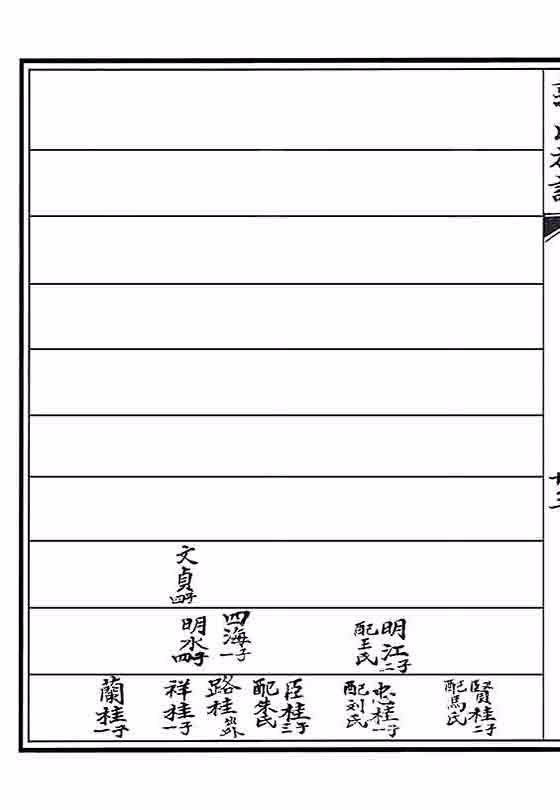 文貞四子
明江二子
配王氏
四海一子
明水四子
賢桂二子
配馬氏
忠桂一子
配刘氏
臣桂三子
配朱氏
路桂
祥桂一子
蘭桂一子